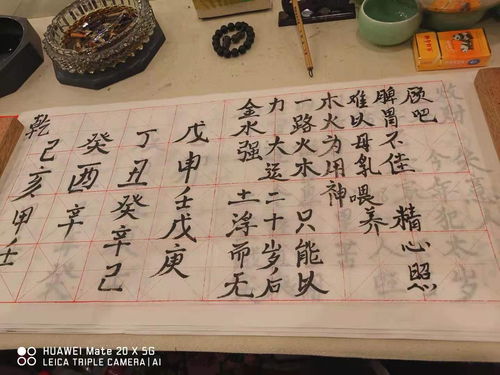 乾 己亥 甲壬
癸酉 辛
丁丑 癸辛己
戊申 壬戊庚
金水强 土浮而无
力 大运 二十岁后
一路火水 只能以
木火为用神
难以母乳喂养
脾胃不佳 精心照
顾吧
HUAWEI Mate 20 X 5G
LEICA TRIPLE CAMERA | AI